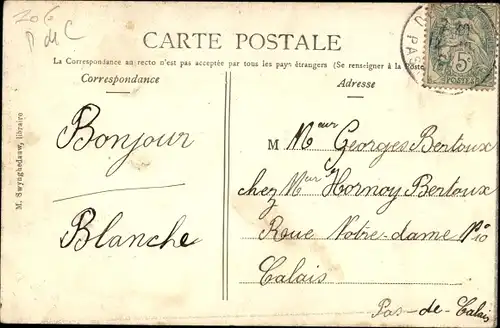 206
P de C
CARTE POSTALE
La Correspondance au recto n'est pas acceptée par tous les pays étrangers (Se renseigner à la Poste
Correspondance
Adresse
5c
POSTES
Bonjour
Blanche
M Meur Georges Bertoux
chez Mur Hornoy Bertoux
Rue Notre-dame No 10
Calais
Pas-de-Calais
libraire